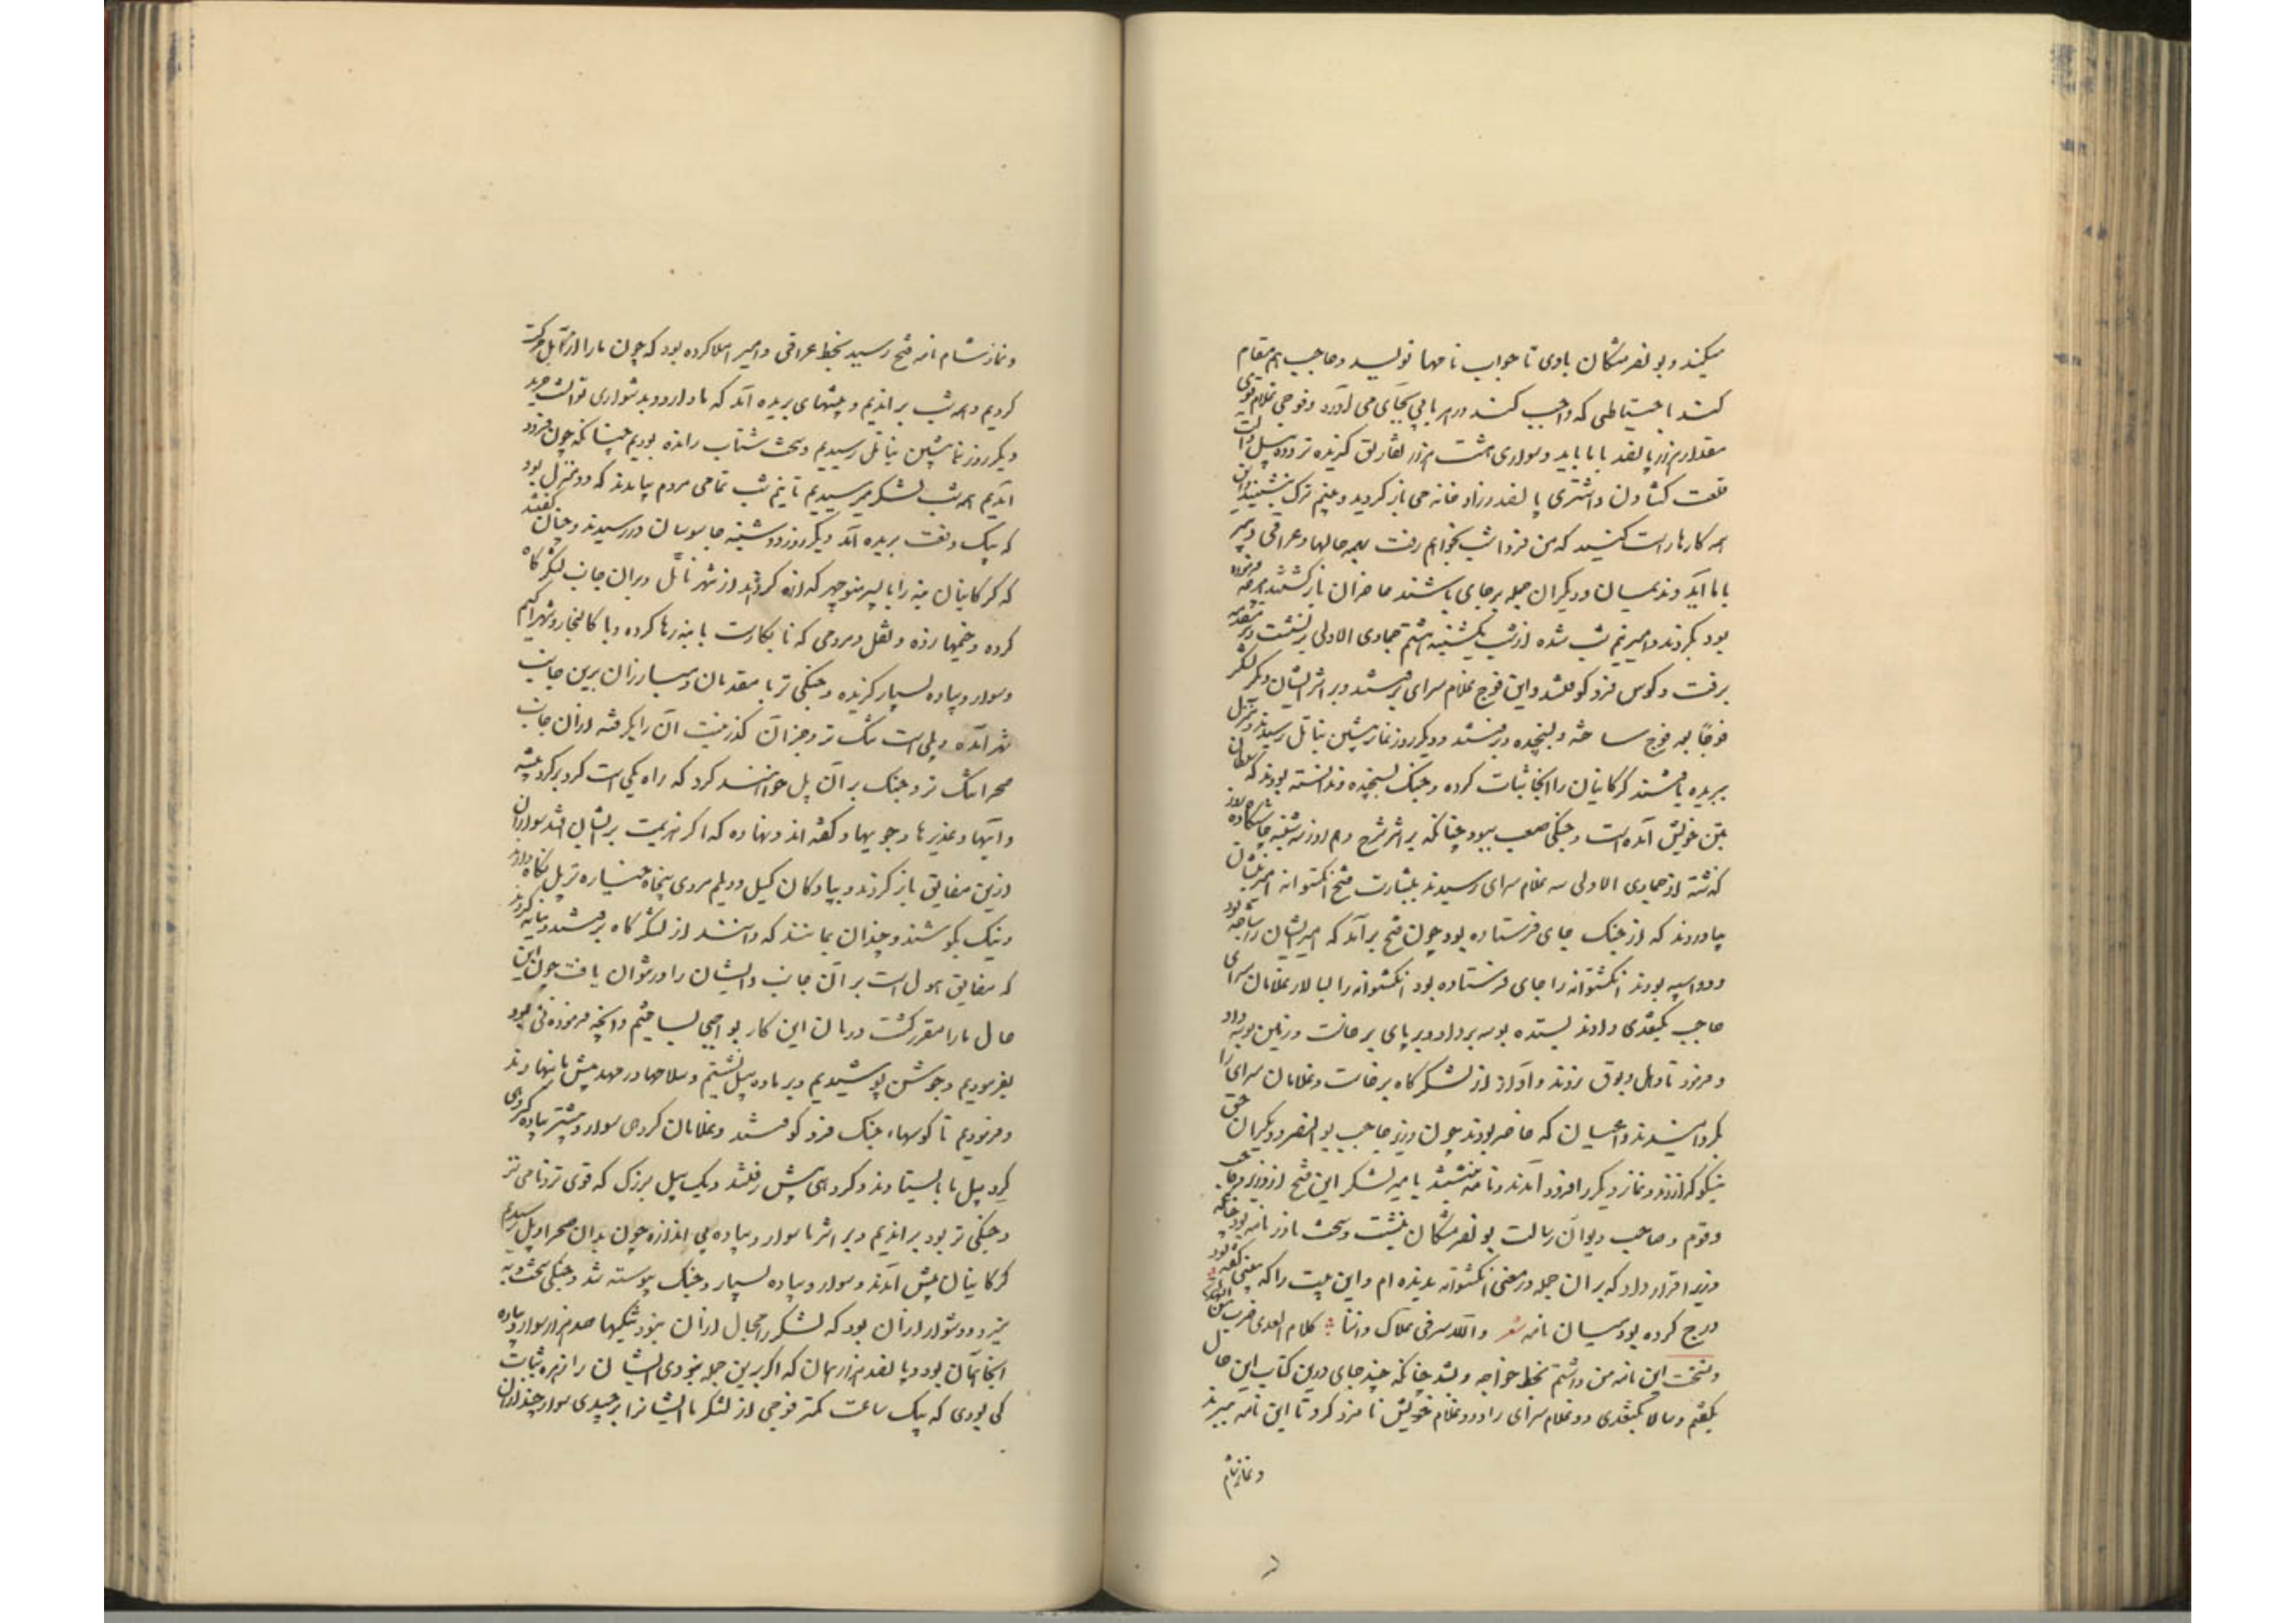 میکند و بونصر مشکان با وی تا جواب نامها نویسد و حاجب هم مقام
کند باحتیاطی که واجب کند در هر بابی بجای می آورد و فوجی غلام قوی
مقدار هزار پانصد با ما باید و سواری هشت هزار تفاریق گزیده تر و ده پیل و آلت
قلعت کشادن و اشتری پانصد زراد خانه می باز گردید و بنیم ترک بنشینید و این
همه کارها راست کنید که من فردا شب بخواهم رفت بهمه حالها و عراقی دبیر
با ما آید و ندیمان و دیگران جمله برجای باشند حاضران بازگشتند و هر چه فرموده
بود بکردند و امیر نیم شب شده از شب یکشنبه هشتم جمادی الاولی برنشست و بر مقدمه
برفت و کوس فرو کوفتند و این فوج غلام سرای برفتند و بر اثر ایشان دیگر لشکر
فوجا بعد فوج ساخته و بسیجیده برفتند و دیگر روز نماز پیشین بناتل رسیدند و منزل
بریده یافتند گرگانیان را آنجا ثبات کرده و جنگ بسیجیده و ندانسته بودند که سلطان
بتن خویش آمده است و جنگی صعب ببود چنانکه بر اثر شرح دهم و روز سه شنبه چاشتگاه ده روز
گذشته از جمادی الاولی سه غلام سرای رسیدند ببشارت فتح انگشتوانه امیر بنشان
بیاوردند که از جنگ جای فرستاده بود چون فتح برآمد که امیر ایشان را تاخته بود
و دو اسپه بودند انگشتوانه را جای فرستاده بود انگشتوانه را بسالار غلامان سرای
حاجب بکتغدی دادند بستد و بوسه برداد و بر پای برخاست و زمین بوسه داد
و فرمود تا دهل و بوق بزدند و آواز از لشکرگاه برخاست و غلامان سرای را
بگردانیدند و اعیان که حاضر بودند چون وزیر و حاجب بوالنصر و دیگران حق
نیکو گزاردند و نماز دیگر را فرود آمدند و نامه نبشتند بامیر لشکر این فتح از وزیر و حاجب
و قوم و صاحب دیوان رسالت بونصر مشکان نبشت و سخت نادر نامه بود چنانکه
وزیر اقرار داد که بر آن جمله در معنی انگشتوانه ندیده ام و این بیت را که متنبی گفته بود
درج کرده بود میان نامه شعر و لله سر فی علاک و انما کلام العدی ضرب من الهذیان
و نسخت این نامه من داشتم بخط خواجه و بشد چنانکه چند جای درین کتاب این حال
بگفتم و سالار بکتغدی دو غلام سرای را و دو غلام خویش نامزد کرد تا این نامه ببرند
و نماز شام
و نماز شام نامه فتح رسید بخط عراقی و امیر املا کرده بود که چون ما را از آمل حرکت
کردیم و همه شب براندیم و بیشهای بریده آمد که مار در او بدشواری توانست خزید
دیگر روز نماز پیشین بناتل رسیدیم و سخت شتاب رانده بودیم چنانکه چون فرود
آمدیم همه شب لشکر میرسیدیم تا نیم شب تمامی مردم بیامدند که دو منزل بود
که بیک دفعت بریده آمد دیگر روز دوشنبه جاسوسان در رسیدند و چنان گفتند
که گرگانیان بنه را با پسر منوچهر گذاره کردند از شهر ناتل و بران جانب لشکرگاه
کرده و خیمها زده و ثقل و مردمی که نابکارست با بنه رها کرده و با کالنجار و شهر آگیم
و سوار و پیاده بسیار گزیده و جنگی تر با مقدمان و مبارزان برین جانب
شهر آمده و پلی است تنگ تر و جز آن گذر نیست آن را بگرفته از آن جانب
صحرا تنگ تر و جنگ بر آن پل خواهند کرد که راه یکی است گرد بر گرد بیشه
و آبها و غدیرها و جویها و گفته اند و نهاده که اگر هزیمت بر ایشان افتد سواران
ازین مضایق باز گردند و پیادگان گیل و دیلم مردی پنجاه خیاره تر پل نگاه دارند
و نیک بکوشند و چندان بمانند که دانند از لشکرگاه برفتند و میانه کردند
که مضایق هول است بر آن جانب و ایشان را در نتوان یافت چون این
حال ما را مقرر گشت درمان این کار بواجبی بساختیم و آنچه فرمودنی بود
بفرمودیم و جوشن پوشیدیم و بر ماده پیل نشستیم و سلاحها در مهد پیش ما نهادند
و فرمودیم تا کوسهاء جنگ فرو کوفتند و غلامان گروهی سوار و بیشتر پیاده گروهی
گرد پیل ما بایستادند و گروهی پیش رفتند و یک پیل بزرگ که قوی تر و نامی تر
و جنگی تر بود براندیم و بر اثر ما سوار و پیاده بی اندازه چون بدان صحرا و پل رسیدیم
گرگانیان پیش آمدند و سوار و پیاده بسیار و جنگ پیوسته شد و جنگی سخت و به
نیرو و دشوار از آن بود که لشکر را مجال از آن نبود تنگیها صد هزار سوار و پیاده
آنجا همان بود و پانصد هزار همان که اگر برین جمله نبودی ایشان را زهره ثبات
کی بودی که بیک ساعت کمتر فوجی از لشکر ما ایشانرا برچیدی سواری چند از آن